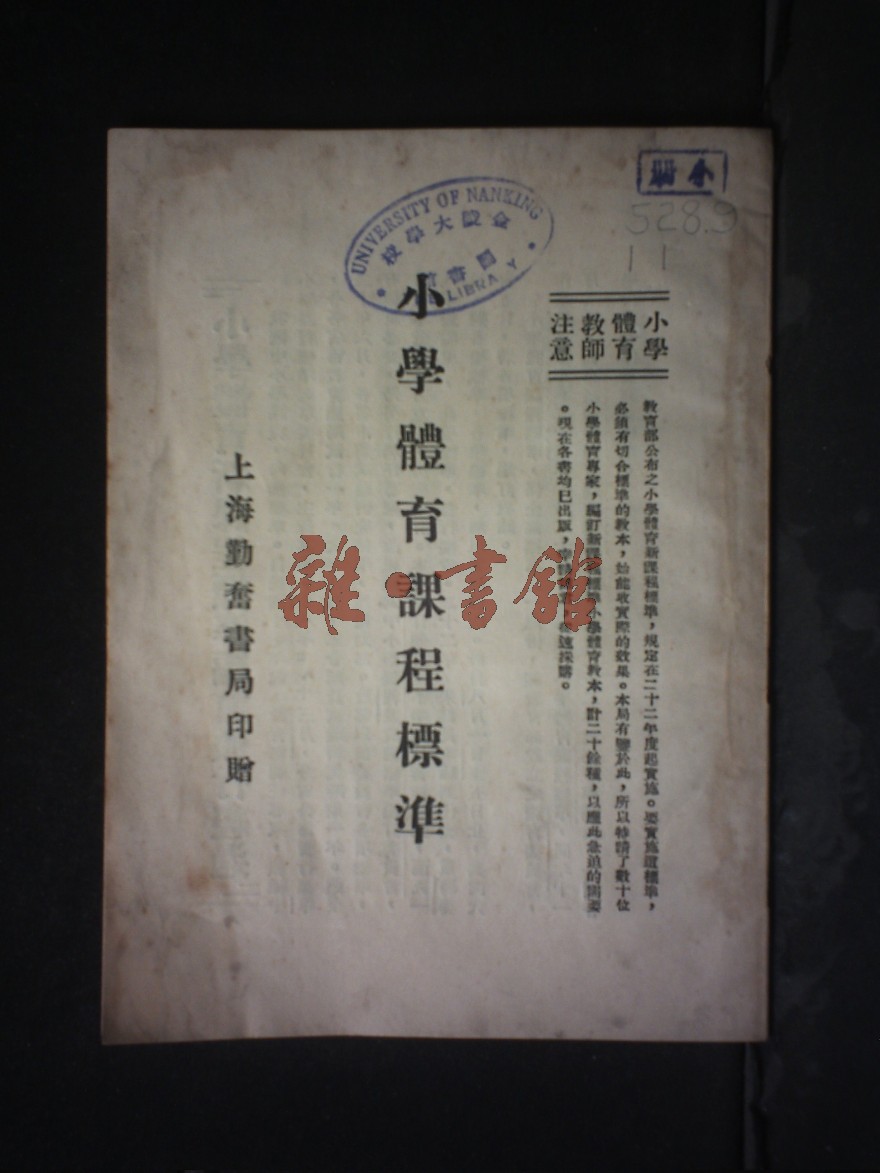 小冊
528.9
11
UNIVERSITY OF NANKING
金陵大學校
圖書館
LIBRARY
小學
體育
教師
注意
教育部公布之小學體育新課程標準，規定在二十二年度起實施。要實施這標準，
必須有切合標準的教本，始能收實際的效果。本局有鑒於此，所以特請了數十位
小學體育專家，編訂新課程標準小學體育教本，計二十餘種，以應此急迫的需要
。現在各書均已出版，速採購。
小學體育課程標準
上海勤奮書局印贈
雜·書館